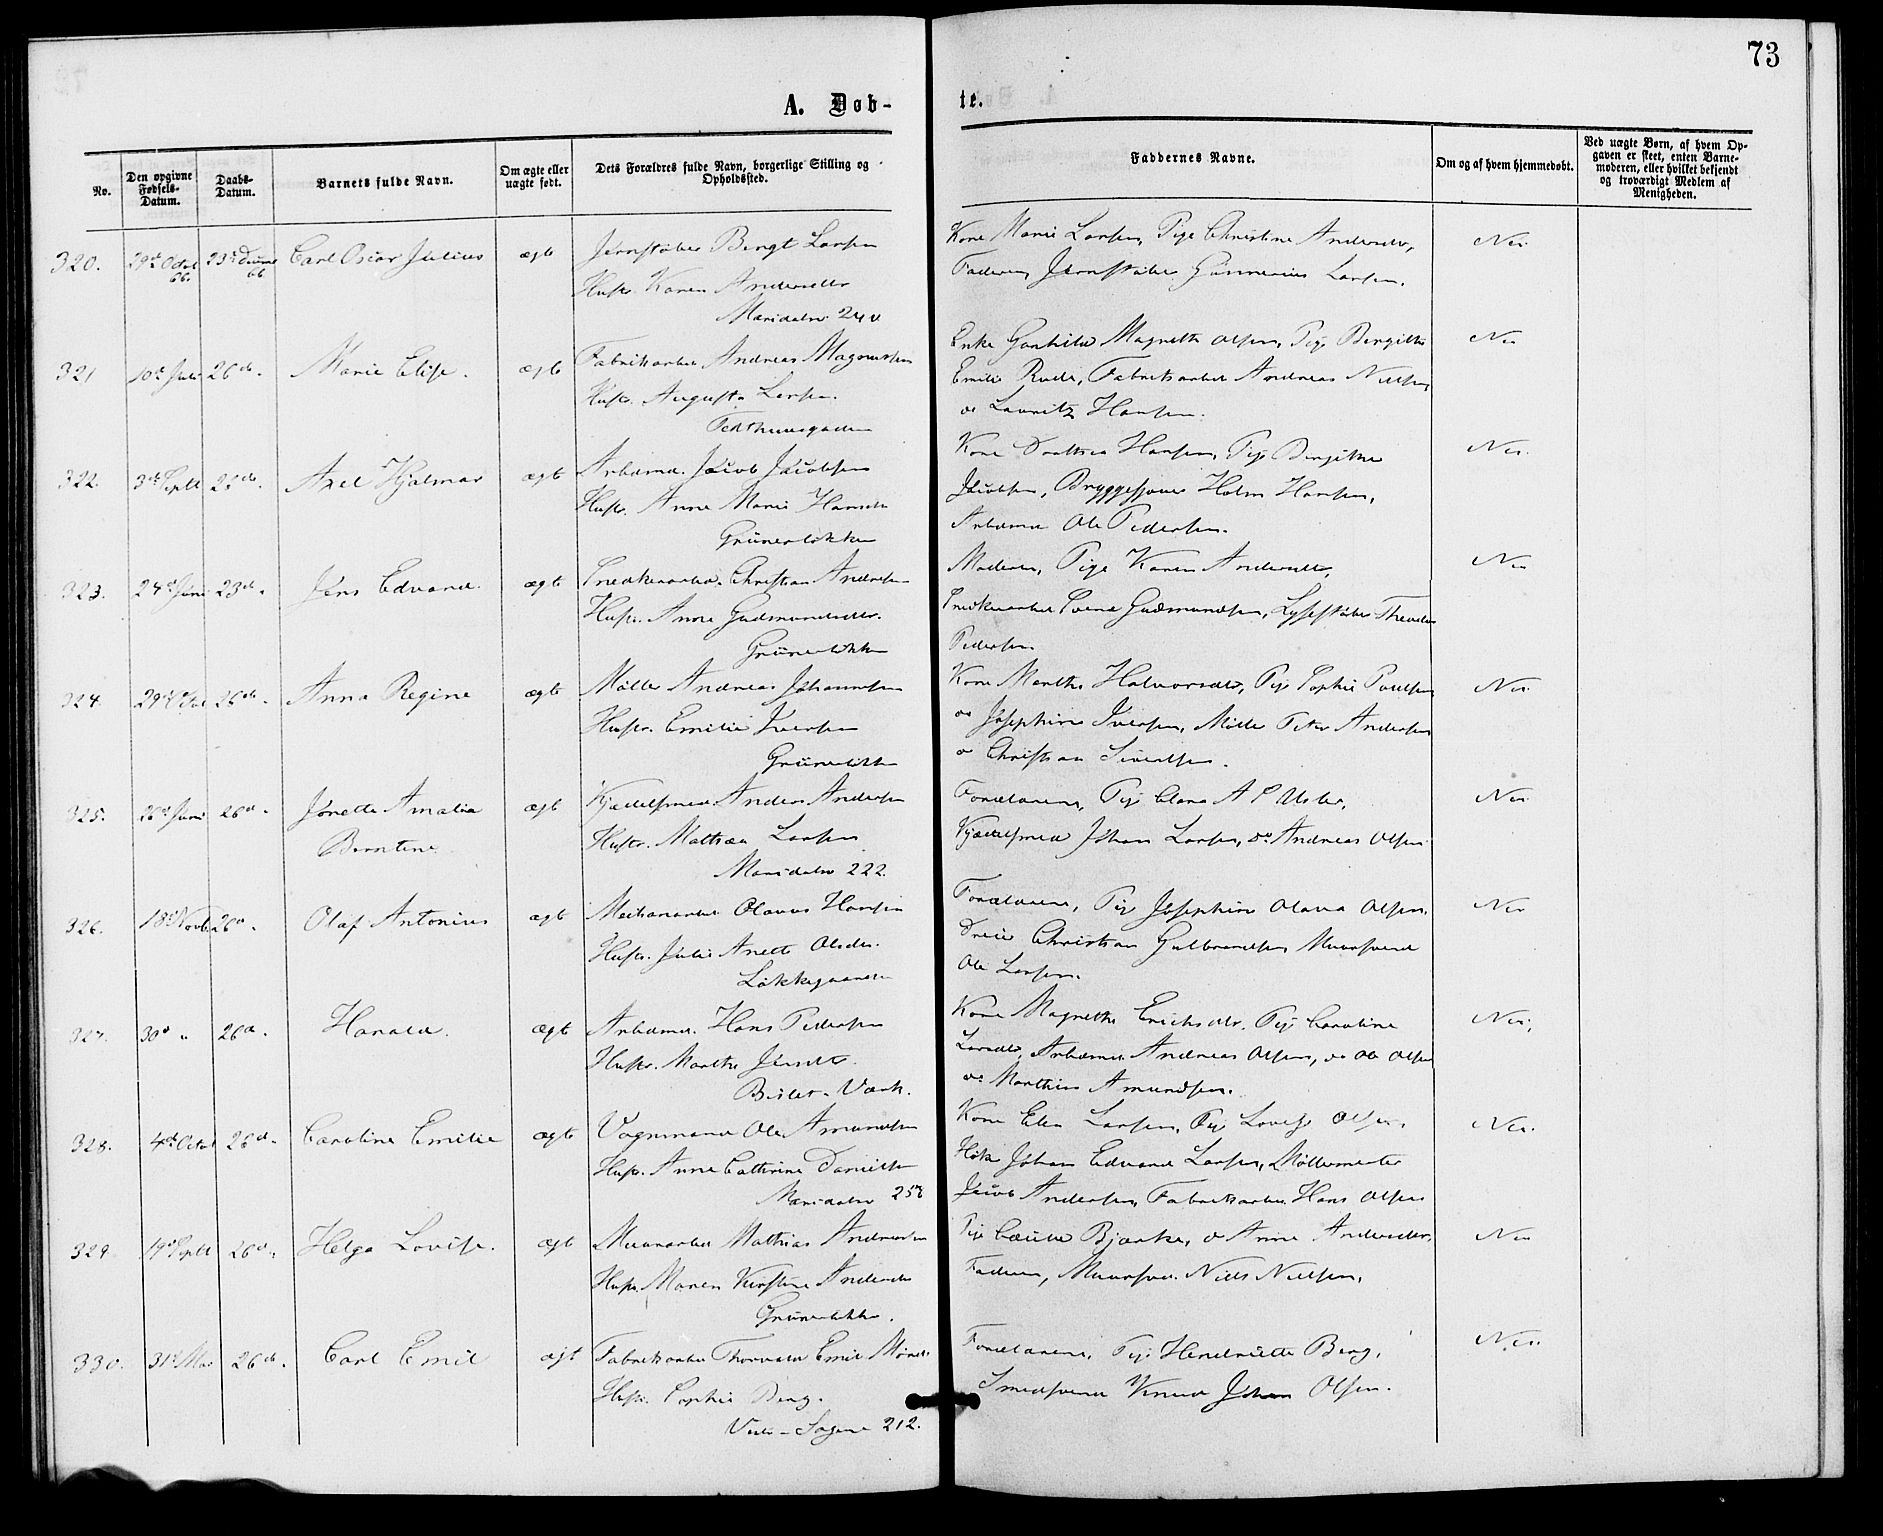 73
A. Døb-
te.
No.
Den opgivne Fødsels-Datum.
Daabs-Datum.
Barnets fulde Navn.
Om ægte eller uægte født.
Dets Forældres fulde Navn, borgerlige Stilling og Opholdssted.
Faddernes Navne.
Om og af hvem hjemmedøbt.
Ved uægte Børn, af hvem Opgaven er skeet, enten Barnemoderen, eller hvilket bekjendt og troværdigt Medlem af Menigheden.
320. 29de Octob 66. Carl Oscar Julius ægte Jernstøber Bengt Larsen
Hustr. Karen Andersdtr
Maridalsv. 240
Kone Marie Larsen, Pige Christine Andersdtr,
Faderen, Jernstøber Gunnerius Larsen.
Nei
321 10de Juli 26de. Marie Elise. ægte Fabrikarbei Andreas Magnussen
Hustr. Augusta Larsen.
Enke Gunhild Magrethe Olsen, Pige Birgitte
Emilie Rude, Fabrikarbei Andreas Nielsen,
og Lauritz Hansen.
Nei
322. 3de Septb Axel Hjalmar ægte Arbdmd. Jacob Jacobsen
Hustr. Anne Marie Hansdtr
Grünerløkken
Kone Dorthea Hansen, Pige Birgitte
Jacobsen, Bryggesjouer Holm Hansen,
Arbdmd Ole Pedersen.
Nei.
323. 24de Juni 23de. Jens Edvard. ægte Snedkerarbd. Christian Andersen
Hustr. Anne Gudmundsdtr.
Grünerløkken
Moderen, Pige Karen Andersdtr,
Snedkerarbei Svend Gudmundsen, Lysestøber Theodor
Pedersen.
Nei
324. 29de Octob 26de. Anna Regine ægte Møller Andreas Johannesen
Hustr. Emilie Iversen
Grünerløkken
Kone Marthe Halvorsdtr, Pige Sophie Poulsen
og Josephine Iversen, Møller Peter Andersen
o Christian Sivertsen.
Nei
325. 26de Juni 26de. Jonette Amalia
Berntine ægte Kjedelsmed. Anders Andersen
Hustr. Mathea Larsen
Maridalsv 222.
Forældrene, Pige Clara
Kjedelsmed Johan Larsen, do Andreas Olsen
Nei
326. 18de Novb 26de. Olaf Antonius ægte Meikanarbei Olavus Hansen
Hustr. Julie Anette Olsdtr.
Løkkegaarden
Forældrene, Pige Josephine Olava Olsen,
Dreier Christian Gulbrandsen, Muursvend
Ole Larsen.
Nei
327. 30de " 26de. Harald. ægte Arbdmd. Hans Pedersen
Hustr. Marthe Jensdtr.
Bislet-Værk.
Kone Magrethe Erichsdtr. Pige Caroline
Larsdtr, Arbdmd. Andreas Olsen, do Ole Olsen
do Marthin Amundsen.
Nei,
328. 4de Octob 26de. Caroline Emilie ægte Vognmand Ole Amundsen
Hustr. Anne Cathrine Danielsen
Maridalsv 258
Kone Elen Larsen, Pige Lovise Olsen,
Høker Johan Edvard Larsen, Møllermester
Jacob Andersen, Fabrikarbei. Hans Olsen
Nei.
329. 19de Septb 26de. Helga Lovise. ægte Muurarbei Mathias Andersen
Hustr. Maren Kirstine Andersdtr
Grünerløkken.
Pige Bjerke, o Anne Andersdtr,
Faderen, Muursvd. Niels Nielsen,
Nei
330. 31de Mai 26de. Carl Emil ægt Fabrikarbei Thorvald Emil
Hustr. Sophie Berg.
Vestre-Sagene 212.
Forældrene, Pige Hendriette Berg,
Smedsvend Johan Olsen.
Nei.